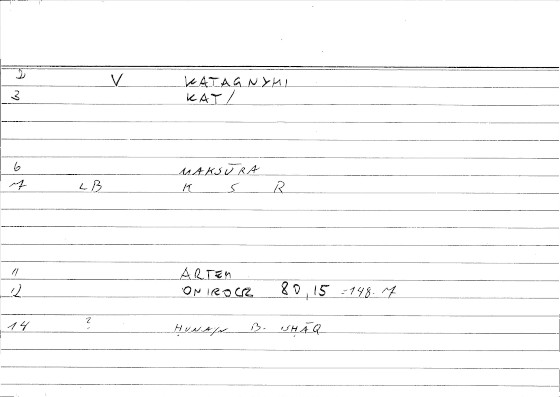 2 V KATAGNYMI
3 KAT/
6 MAKSŪRA
7 LB K S R
11 ARTEM
12 ONIROCR 80,15 =148.7
14 ? ḤUNAIN B. ISḤĀQ